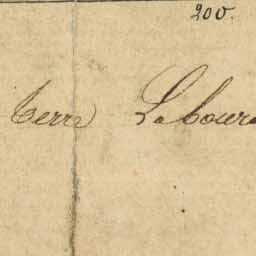 200.
terre Laboura